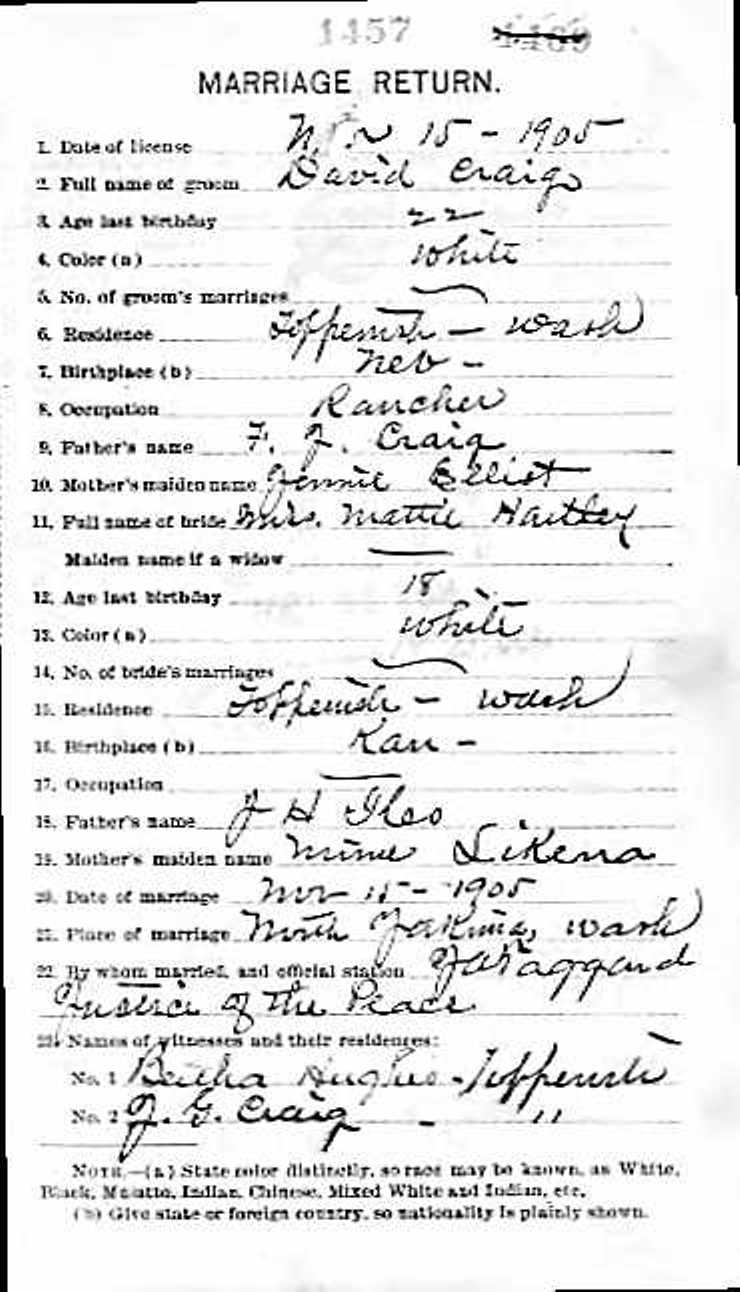 1457 4469
MARRIAGE RETURN.
1. Date of license Nov 15 - 1905
2. Full name of groom David Craig
3. Age last birthday 22
4. Color (a) White
5. No. of groom's marriages
6. Residence Toppenish - Wash
7. Birthplace (b) Neb -
8. Occupation Rancher
9. Father's name F. J. Craig
10. Mother's maiden name Jennie Elliot
11. Full name of bride Mrs. Mattie Hartley
Maiden name if a widow
12. Age last birthday 18
13. Color (a) White
14. No. of bride's marriages
15. Residence Toppenish - Wash
16. Birthplace (b) Kan -
17. Occupation
18. Father's name J H
19. Mother's maiden name
20. Date of marriage Nov 15 - 1905
21. Place of marriage North Yakima, Wash
22. By whom married, and official station
Justice of the Peace
23. Names of witnesses and their residences:
No. 1 Bertha Hughes - Toppenish
No. 2 J. G. Craig - "
NOTE.—(a) State color distinctly, so race may be known, as White,
Black, Mulatto, Indian, Chinese, Mixed White and Indian, etc.
(b) Give state or foreign country, so nationality is plainly shown.